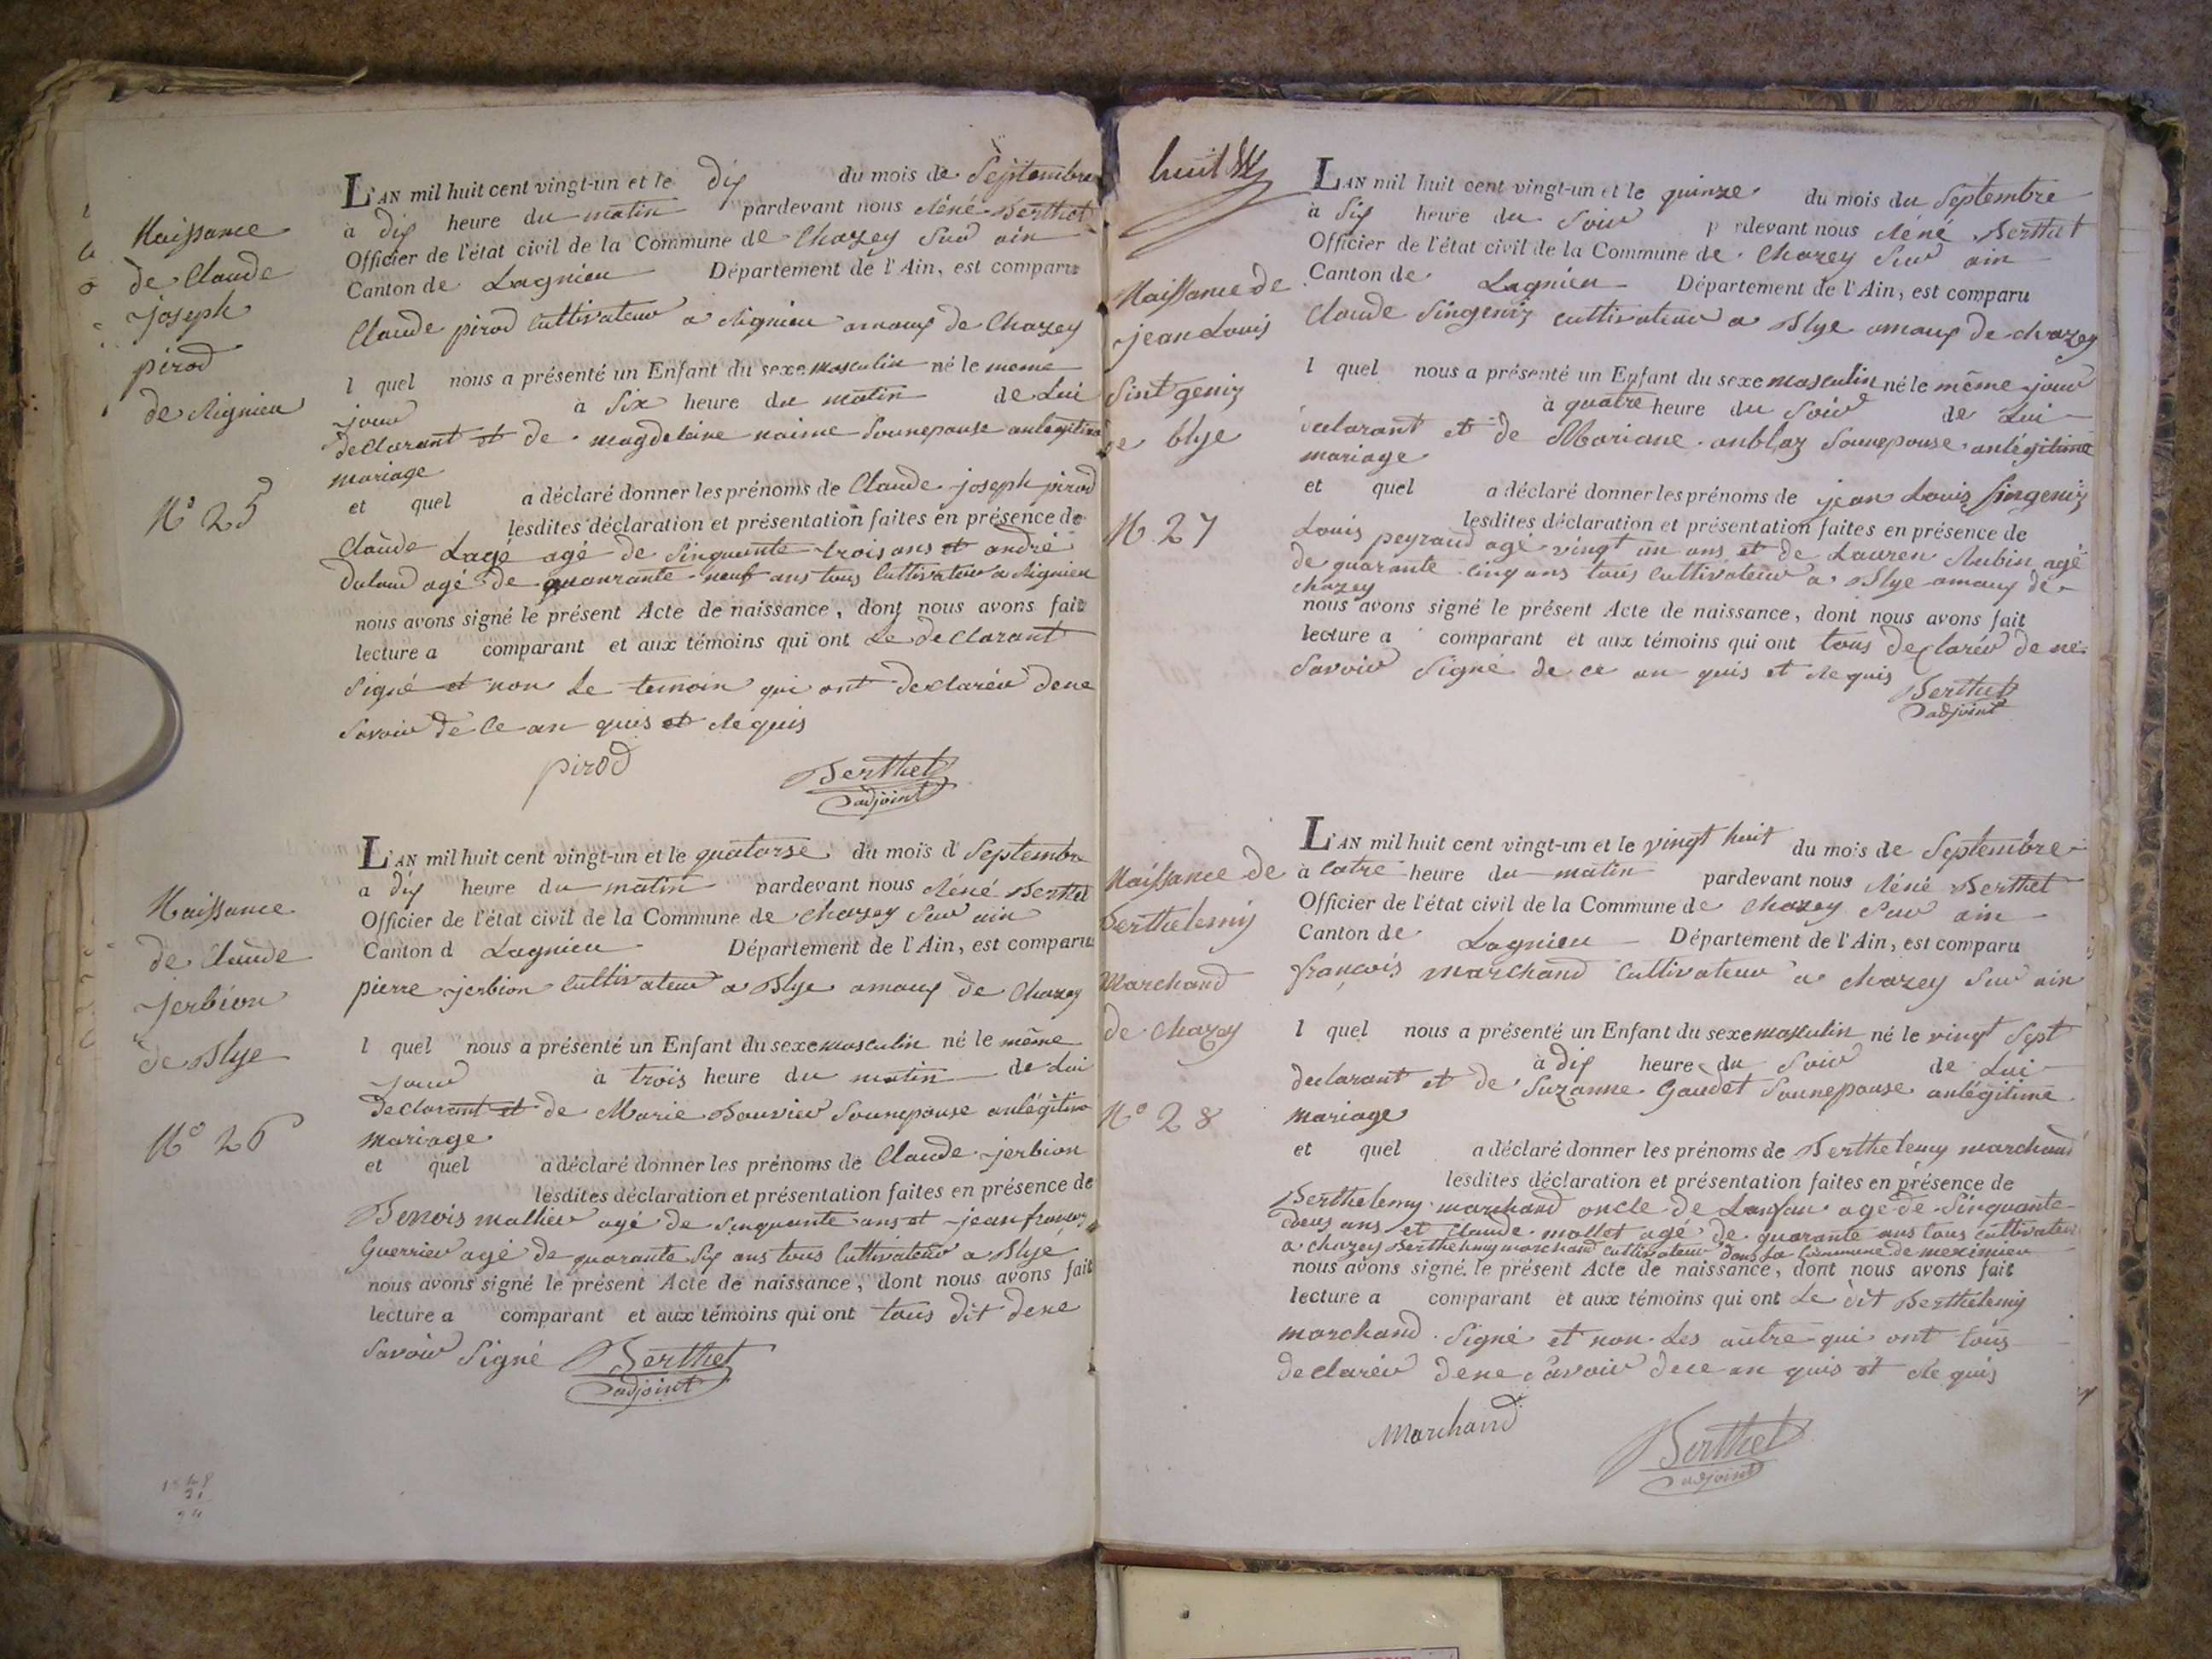 Naissance
de Claude
joseph
pirod
de Rignieu
N° 25
L'AN mil huit cent vingt-un et le dix du mois de Septembre
a dix heure du matin pardevant nous Réné Berthet
Officier de l'état civil de la Commune de Chazey Sur ain
Canton de Lagnieu Département de l'Ain, est comparu
Claude pirod Cultivateur a Rignieu amaux de Chazey
l quel nous a présenté un Enfant du sexe masculin né le meme
jour à Six heure du matin de Lui
declarant et de magdeleine naime Sounepouse anlegitime
mariage
et quel a déclaré donner les prénoms de Claude joseph pirod
lesdites déclaration et présentation faites en présence de
Claude Lagé agé de Sinquente trois ans et andré
dulaud agé de quanrante neuf ans tous Cultivateur a Rignieu
nous avons signé le présent Acte de naissance, dont nous avons fait
lecture a comparant et aux témoins qui ont Le declarant
Signé et non Le temoin qui ont declaréu dene
Savoir de Ce an quis et Requis
pirod
Berthet
adjoint
Naissance
de Claude
jerbion
de Blye
N° 26
L'AN mil huit cent vingt-un et le quatorse du mois d Septembre
a dix heure du matin pardevant nous Réné Berthet
Officier de l'état civil de la Commune de Chazey Sur ain
Canton d Lagnieu Département de l'Ain, est comparu
pierre jerbion Cultivateur a Blye amaux de Chazey
l quel nous a présenté un Enfant du sexe masculin né le même
jour à trois heure du matin de Lui
declarant et de Marie Bouvier Sounepouse anlégitime
mariage
et quel a déclaré donner les prénoms de Claude jerbion
lesdites déclaration et présentation faites en présence de
Benois mallieu agé de Sinquante ans et jean francois
Guerrier agé de quarante Six ans tous Cultivateur a Blye
nous avons signé le présent Acte de naissance, dont nous avons fait
lecture a comparant et aux témoins qui ont tous dit dene
Savoir Signé Berthet
adjoint
huit
Naissance de
jean Louis
Sint geniz
de blye
N 27
L'AN mil huit cent vingt-un et le quinze du mois du Septembre
à Six heure du Soir p rdevant nous Réné Berthet
Officier de l'état civil de la Commune de Chazey Sur ain
Canton de Lagnieu Département de l'Ain, est comparu
Claude Singeniz cultivateur a Blye amaux de chazey
l quel nous a présenté un Enfant du sexe masculin né le même jour
à quatre heure du Soir de Lui
declarant et de Mariane anblaz Sounepouse anlégitime
mariage
et quel a déclaré donner les prénoms de jean Louis Singeniz
lesdites déclaration et présentation faites en présence de
Louis peyraud agé vingt un ans et de Lauren Aubin agé
de quarante cinq ans tous Cultivateur a Blye amaux de
chazey
nous avons signé le présent Acte de naissance, dont nous avons fait
lecture a comparant et aux témoins qui ont tous declaréu de ne
Savoir Signé de ce an quis et Requis
Berthet
adjoint
Naissance de
Berthelemy
Marchand
de Chazey
N° 28
L'AN mil huit cent vingt-un et le vingt huit du mois de Septembre
à catre heure du matin pardevant nous Réné Berthet
Officier de l'état civil de la Commune de Chazey Sur ain
Canton de Lagnieu Département de l'Ain, est comparu
françois marchand Cultivateur a chazey Sur ain
l quel nous a présenté un Enfant du sexe masculin né le vingt Sept
à dix heure du Soir de Lui
declarant et de Suzanne Gaudet Sounepouse anlégitime
mariage
et quel a déclaré donner les prénoms de Berthelemy marchand
lesdites déclaration et présentation faites en présence de
Berthelemy marchand oncle de Lanfan agé de Sinquante
deus ans et Claude mollet agé de quarante ans tous cultivateur
a Chazey Berthelemy marchand Cultivateur dans La Commune de meximieu
nous avons signé le présent Acte de naissance, dont nous avons fait
lecture a comparant et aux témoins qui ont Le dit Berthélemy
marchand Signé et non Les autre qui ont tous
declaréu dene Savoir dece an quis et Requis
Marchand
Berthet
adjoint